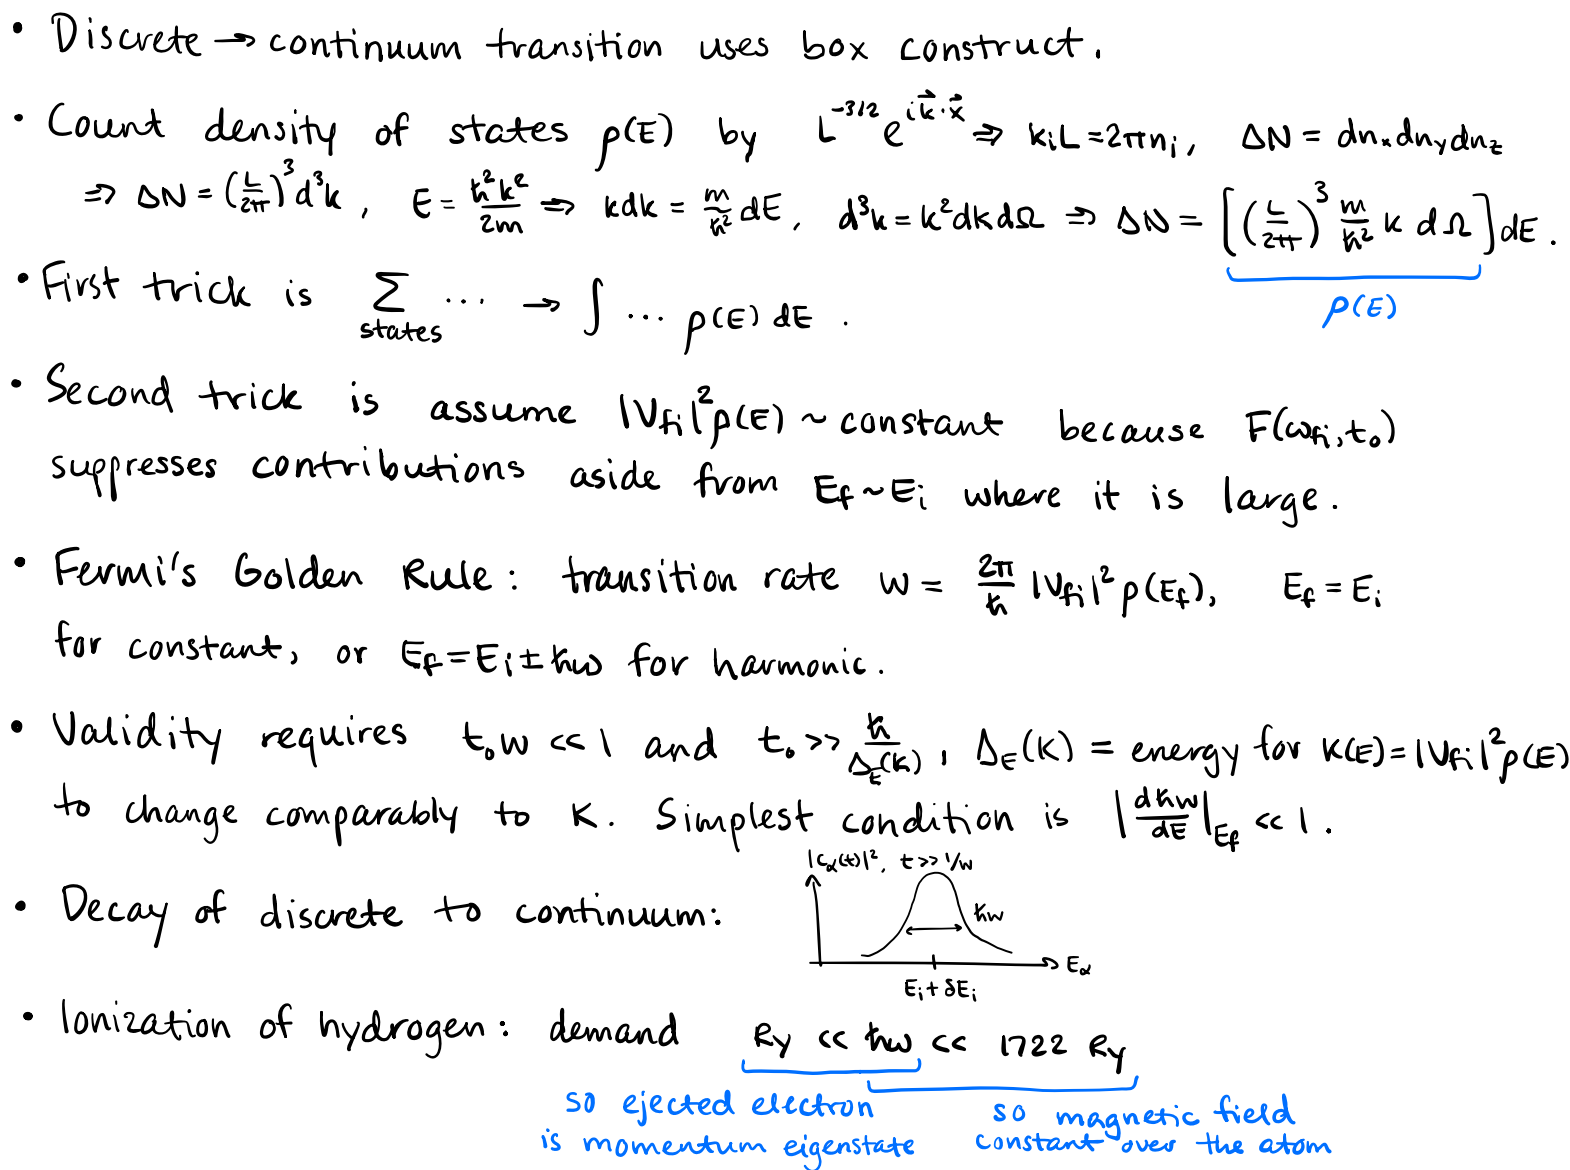 • Discrete → continuum transition uses box construct.
• Count density of states ρ(E) by L^{-3/2} e^{i\vec{k}·\vec{x}} ⇒ k_i L = 2πn_i, ΔN = dn_x dn_y dn_z
⇒ ΔN = (L/2π)^3 d^3k, E = ħ^2k^2/2m ⇒ kdk = m/ħ^2 dE, d^3k = k^2 dk dΩ ⇒ ΔN = [(L/2π)^3 m/ħ^2 k dΩ] dE.
ρ(E)
• First trick is ∑_{states} ... → ∫ ... ρ(E) dE.
• Second trick is assume |V_{fi}|^2 ρ(E) ~ constant because F(ω_{fi}, t_0)
suppresses contributions aside from E_f ~ E_i where it is large.
• Fermi's Golden Rule: transition rate w = 2π/ħ |V_{fi}|^2 ρ(E_f), E_f = E_i
for constant, or E_f = E_i ± ħω for harmonic.
• Validity requires t_0 w << 1 and t_0 >> ħ/Δ_E(K), Δ_E(K) = energy for K(E) = |V_{fi}|^2 ρ(E)
to change comparably to K. Simplest condition is |dħw/dE|_{E_f} << 1.
|c_α(t)|^2, t >> 1/w
• Decay of discrete to continuum:
ħw
E_α
E_i + δE_i
• Ionization of hydrogen: demand Ry << ħω << 1722 Ry
so ejected electron
is momentum eigenstate
so magnetic field
constant over the atom